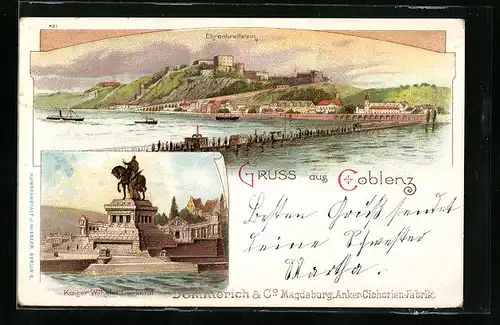 421
Ehrenbreitstein
GRUSS aus Coblenz
Besten Gruß sendet
deine Schwester
Martha.
Kaiser Wilhelm Denkmal
Dommerich & Co Magdeburg. Anker-Cichorien-Fabrik.